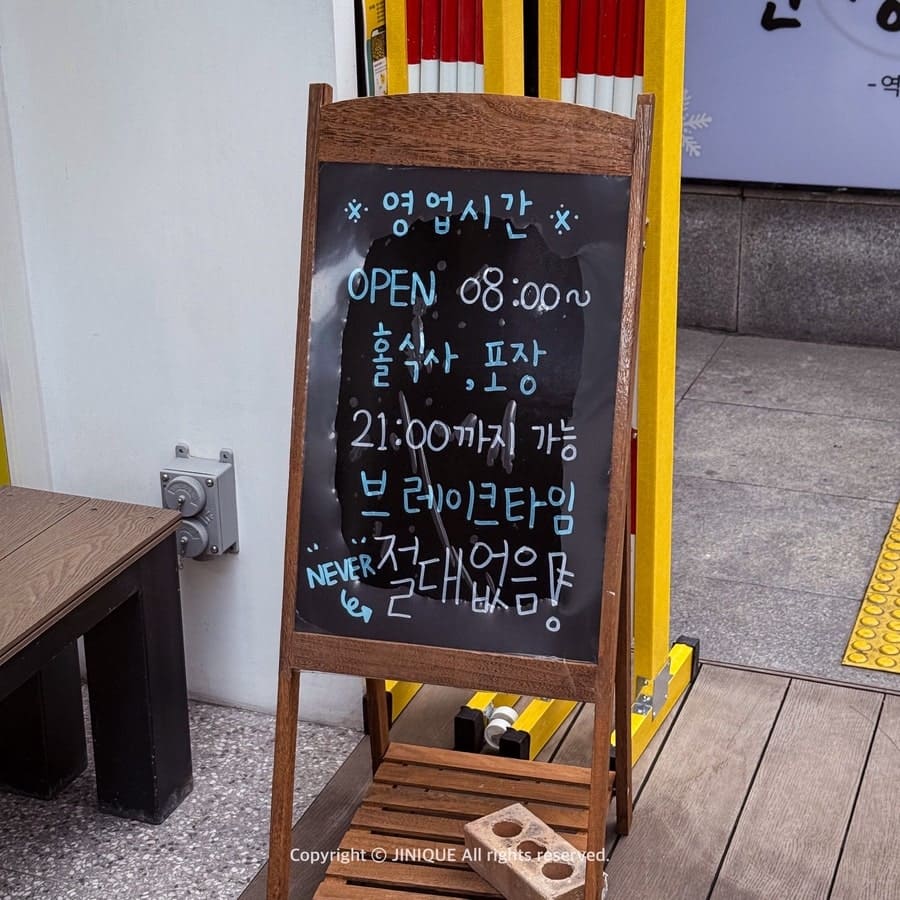 영업시간
OPEN 08:00~
홀식사, 포장
21:00까지 가능
브레이크타임
"NEVER" 절대없음!
Copyright © JINIQUE All rights reserved.